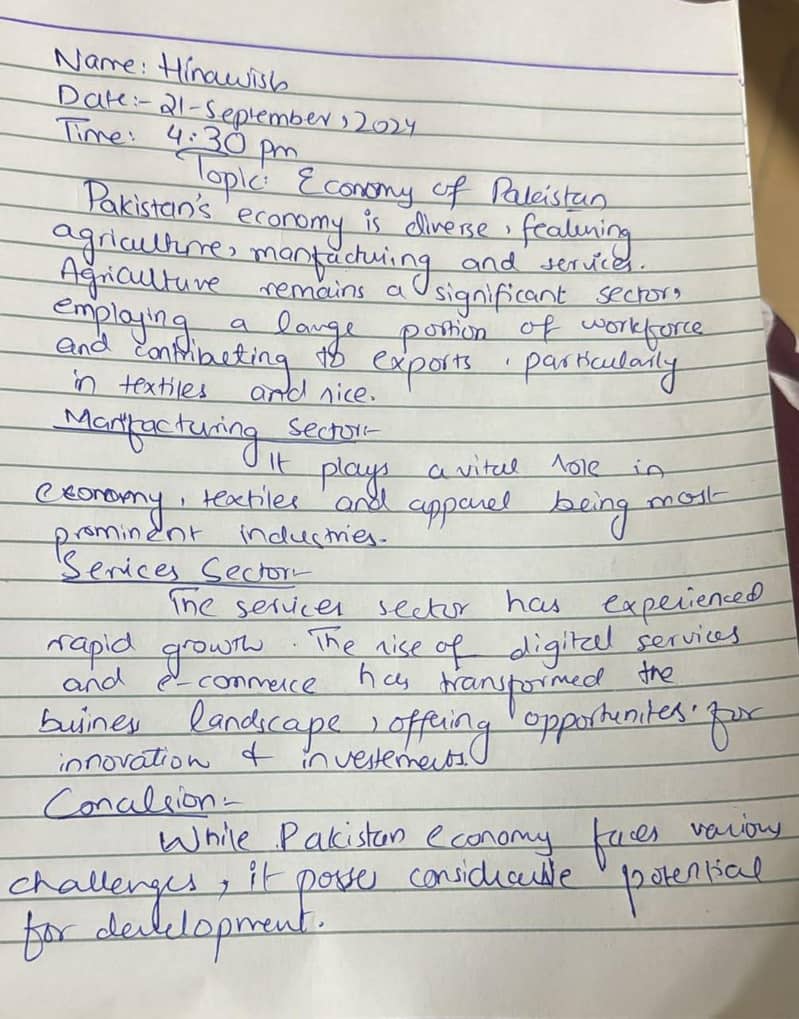 Name: Hinawish
Date:- 21-September, 2024
Time: 4:30 pm
Topic: Economy of Pakistan
Pakistan's economy is diverse, featuring
agriculture, manfacturing and services.
Agriculture remains a significant sector,
employing a large portion of workforce
and contributing to exports, particularly
in textiles and rice.
Manfacturing Sector:-
It plays a vital role in
economy, textiles and apparel being most
prominent industries.
Services Sector:-
The services sector has experienced
rapid growth. The rise of digital services
and e-commerce has transformed the
busines landscape, offering opportunites for
innovation & investements.
Conclusion:-
While Pakistan economy faces various
challenges, it posses considerable potential
for development.